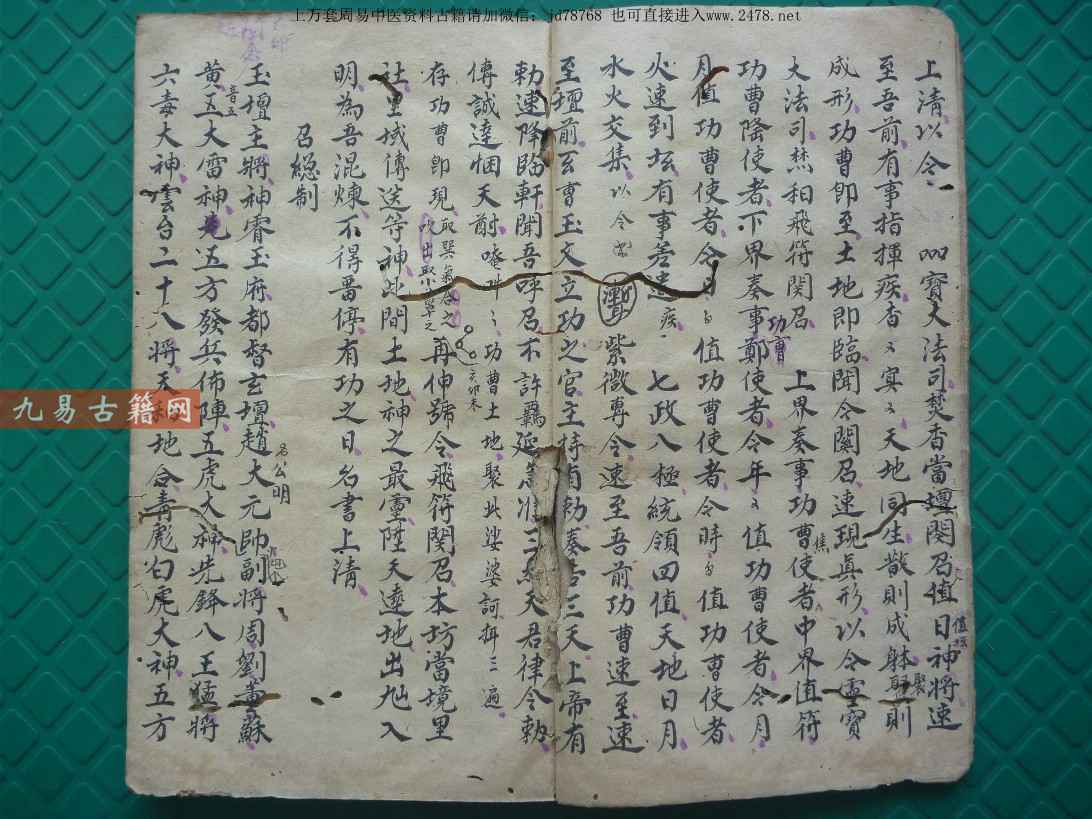 上万套周易中医资料古籍请加微信：jd78768 也可直接进入www.2478.net
上清以令 靈寶大法司焚香當壇関召值日神將速
至吾前有事指揮疾杳〻冥〻天地同生散則成躰聚則
成形功曹即至土地即臨聞令関召速現真形以令靈寶
大法司焚和飛符関召上界奏事功曹使者中界值符
功曹陰使者下界奏事鄭使者今年〻值功曹使者今月
月值功曹使者今日〻值功曹使者今時〻值功曹使者
火速到坛有事差遣疾 七政八極統領四值天地日月
水火交集以令 紫微專令速至吾前功曹速至速
至壇前玄曹玉文立功之官主持有勅奏告三天上帝有
勅速降臨軒聞吾呼召不許羈延急准三天君律令勅
傳誠達悃天酎唵吽〻功曹土地聚此娑婆訶拜三遍
存功曹即現取巽氣合之吹出取小草之再伸號令飛符関召本坊當境里
社里域傳送等神此間土地神之最靈陞天達地出地入
明為吾混煉不得畱停有功之日名書上清
召縂制
玉壇主將神霄玉府都督玄壇趙大元帥副將周劉黃蘇
名公明
黃五大雷神五方發兵佈陣五虎大神先鋒八王猛將
六毒大神雲台二十八將天和地合毒彪白虎大神五方
九易古籍网